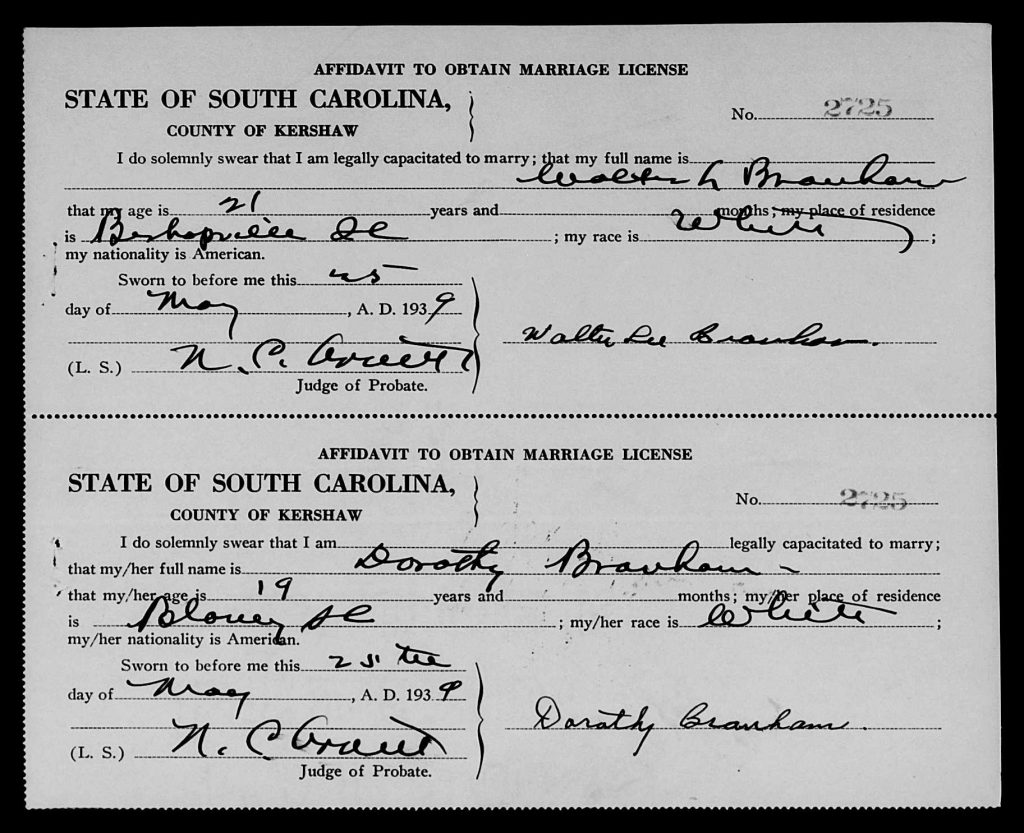 AFFIDAVIT TO OBTAIN MARRIAGE LICENSE
STATE OF SOUTH CAROLINA,
COUNTY OF KERSHAW
No. 2725
I do solemnly swear that I am legally capacitated to marry; that my full name is
Walter L Branham
that my age is 21 years and months; my place of residence
is Bishopville SC ; my race is White ;
my nationality is American.
Sworn to before me this 25
day of May, A. D. 1939
Walter Lee Branham.
(L. S.) N. C. Arnett
Judge of Probate.
AFFIDAVIT TO OBTAIN MARRIAGE LICENSE
STATE OF SOUTH CAROLINA,
COUNTY OF KERSHAW
No. 2725
I do solemnly swear that I am legally capacitated to marry;
that my/her full name is Dorothy Branham -
that my/her age is 19 years and months; my/her place of residence
is Blaney SC ; my/her race is White ;
my/her nationality is American.
Sworn to before me this 25th
day of May, A. D. 1939
Dorothy Branham.
(L. S.) N. C. Arnett
Judge of Probate.